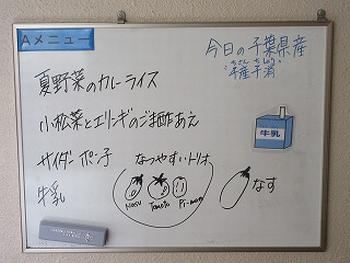 Aメニュー
今日の千葉県産
ちさん ちしょう
千産千消
夏野菜のカレーライス
小松菜とエリンギのごま酢あえ
牛乳
サイダーポンチ
なつやすいトリオ
なす
Nasu Tomato Pi-man
牛乳